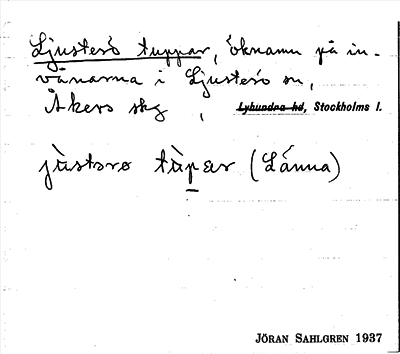 Ljusterö tuppar, öknamn på in-
vånarna i Ljusterö sn,
Åkers skg , Lyhundra hd, Stockholms l.
jùstsrø tùpar (Länna)
JÖRAN SAHLGREN 1937